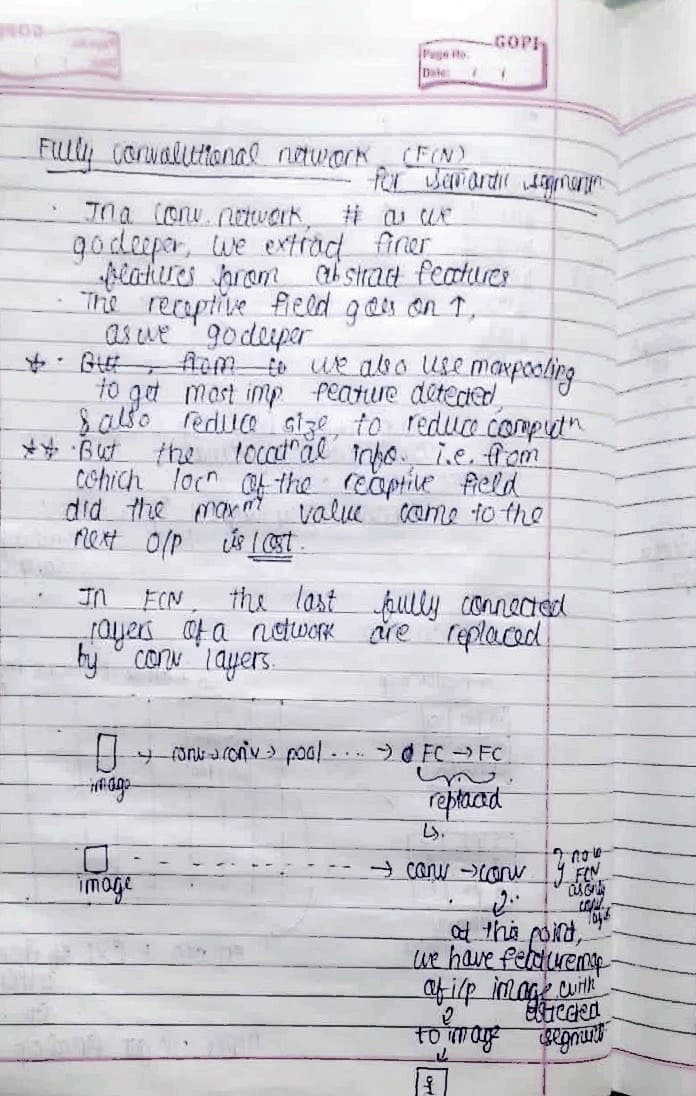 GOPI
Page No.
Date: / /
Fully convalutional network (FCN)
for semantic segmentn
· In a conv. network, # as we
go deeper, we extract finer
features from abstract features
· The receptive field goes on ↑,
as we go deeper
* · But, from to we also use maxpooling
to get most imp feature detected,
& also reduce size, to reduce computn
** · But the locatnal info. i.e. from
which locn of the receptive field
did the maxm value come to the
next o/p is lost.
· In FCN, the last fully connected
layers of a network are replaced
by conv layers.
→ conv → conv → pool .... → FC → FC
image
replaced
→ conv → conv } now
image
FCN
as only
conv
at this point,
we have feature map
of i/p image with
detected
to image segments